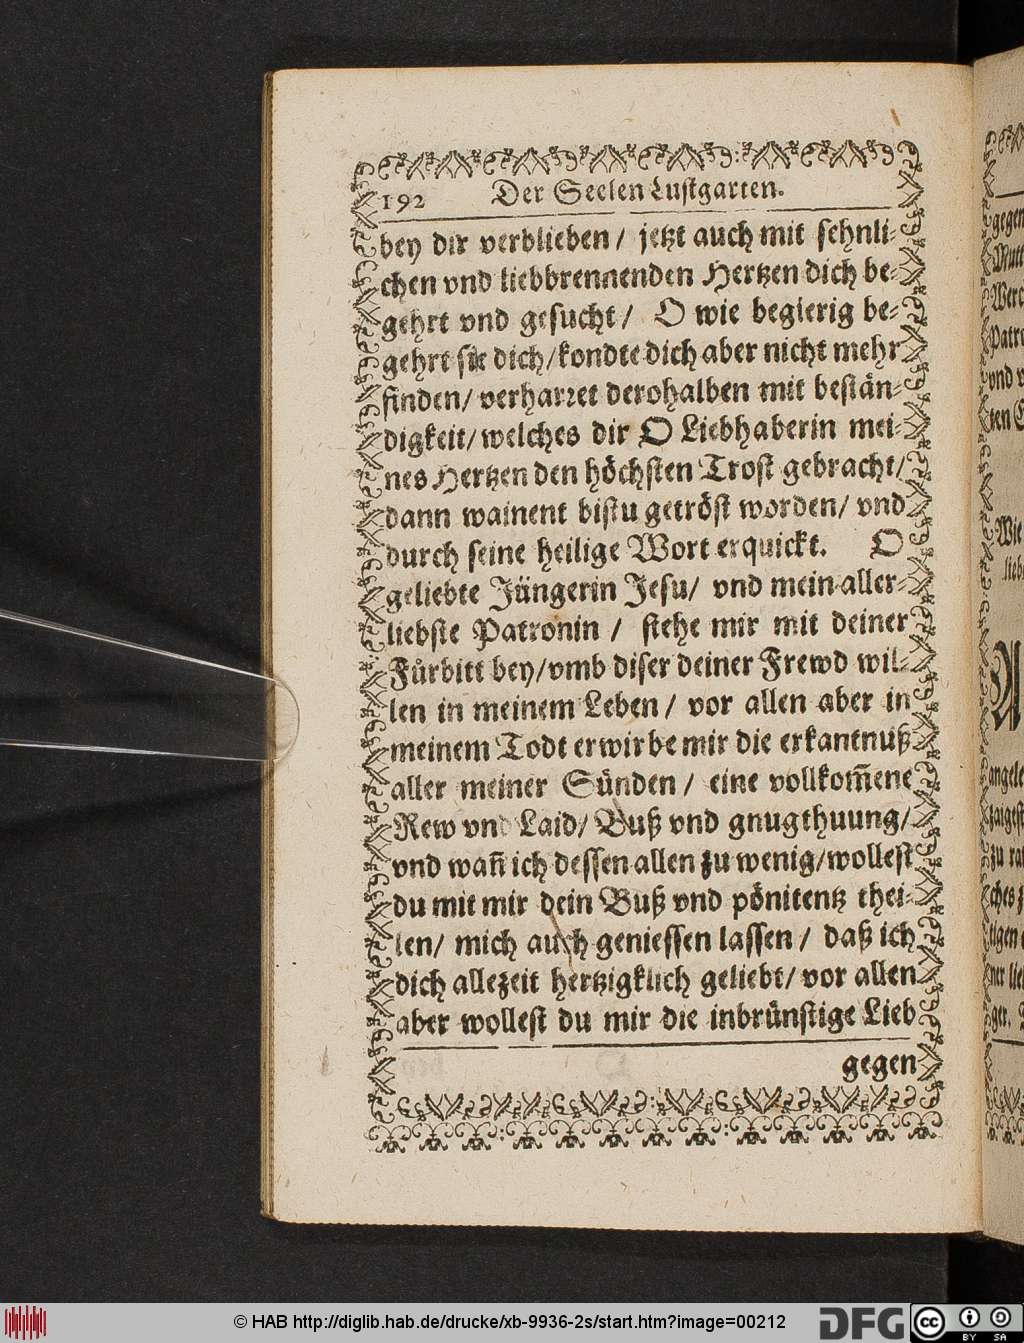 192 Der Seelen Lustgarten.
bey dir verblieben / jetzt auch mit sehnli-
chen vnd liebbrennenden Hertzen dich be-
gehrt vnd gesucht / O wie begierig be-
gehrt sie dich / kondte dich aber nicht mehr
finden / verharret derohalben mit bestän-
digkeit / welches dir O Liebhaberin mei-
nes Hertzen den höchsten Trost gebracht /
dann wainent bistu getröst worden / vnd
durch seine heilige Wort erquickt. O
geliebte Jüngerin Jesu / vnd mein aller-
liebste Patronin / stehe mir mit deiner
Fürbitt bey / vmb diser deiner Frewd wil-
len in meinem Leben / vor allen aber in
meinem Todt erwirbe mir die erkantnuß
aller meiner Sünden / eine vollkom̄ene
Rew vnd Laid / Buß vnd gnugthuung /
vnd wan̄ ich dessen allen zu wenig / wollest
du mit mir dein Buß vnd pönitentz thei-
len / mich auch geniessen lassen / daß ich
dich allezeit hertzigklich geliebt / vor allen
aber wollest du mir die inbrünstige Lieb
gegen
© HAB http://diglib.hab.de/drucke/xb-9936-2s/start.htm?image=00212
DFG
cc
BY SA